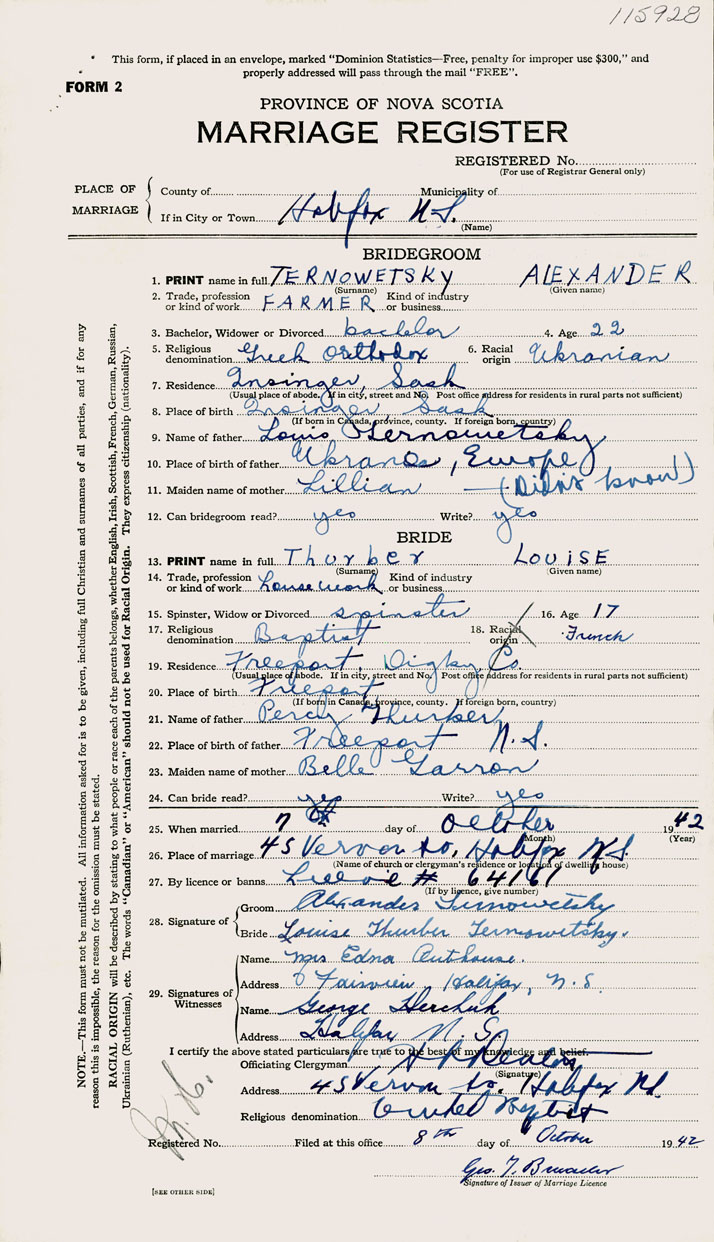 115928
* This form, if placed in an envelope, marked "Dominion Statistics—Free, penalty for improper use $300," and
properly addressed will pass through the mail "FREE".
FORM 2
PROVINCE OF NOVA SCOTIA
MARRIAGE REGISTER
REGISTERED No.
(For use of Registrar General only)
PLACE OF MARRIAGE
County of Municipality of
If in City or Town Halifax N.S.
(Name)
BRIDEGROOM
1. PRINT name in full TERNOWETSKY ALEXANDER
(Surname) (Given name)
2. Trade, profession or kind of work FARMER Kind of industry or business
3. Bachelor, Widower or Divorced bachelor 4. Age 22
5. Religious denomination Greek Orthodox 6. Racial origin Ukranian
7. Residence Insinger, Sask
(Usual place of abode. If in city, street and No. Post office address for residents in rural parts not sufficient)
8. Place of birth Insinger Sask
(If born in Canada, province, county. If foreign born, country)
9. Name of father Louis Ternowetsky
10. Place of birth of father Ukrane, Europe
11. Maiden name of mother Lillian — (Didn't know)
12. Can bridegroom read? yes Write? yes
BRIDE
13. PRINT name in full Thurber LOUISE
(Surname) (Given name)
14. Trade, profession or kind of work housework Kind of industry or business
15. Spinster, Widow or Divorced spinster 16. Age 17
17. Religious denomination Baptist 18. Racial origin French
19. Residence Freeport, Digby Co.
(Usual place of abode. If in city, street and No. Post office address for residents in rural parts not sufficient)
20. Place of birth Freeport
(If born in Canada, province, county. If foreign born, country)
21. Name of father Percy Thurber
22. Place of birth of father Freeport N.S.
23. Maiden name of mother Belle Garron
24. Can bride read? yes Write? yes
25. When married 7 day of October 1942
(Month) (Year)
26. Place of marriage 45 Vernon St., Halifax N.S.
(Name of church or clergyman's residence or location of dwelling house)
27. By licence or banns Licence # 64161
(If by licence, give number)
28. Signature of
Groom Alexander Ternowetsky
Bride Louise Thurber Ternowetsky.
29. Signatures of Witnesses
Name Mrs Edna Outhouse.
Address Fairview, Halifax, N.S.
Name George Herchuk
Address Halifax N.S.
I certify the above stated particulars are true to the best of my knowledge and belief.
Officiating Clergyman
(Signature)
Address 45 Vernon St., Halifax N.S.
Religious denomination United Baptist
Registered No. Filed at this office 8th day of October 1942
Geo. T.
Signature of Issuer of Marriage Licence
[SEE OTHER SIDE]
NOTE.—This form must not be mutilated. All information asked for is to be given, including full Christian and surnames of all parties, and if for any
reason this is impossible, the reason for the omission must be stated.
RACIAL ORIGIN will be described by stating to what people or race each of the parents belongs, whether English, Irish, Scottish, French, German, Russian,
Ukrainian (Ruthenian), etc. The words "Canadian" or "American" should not be used for Racial Origin. They express citizenship (nationality).